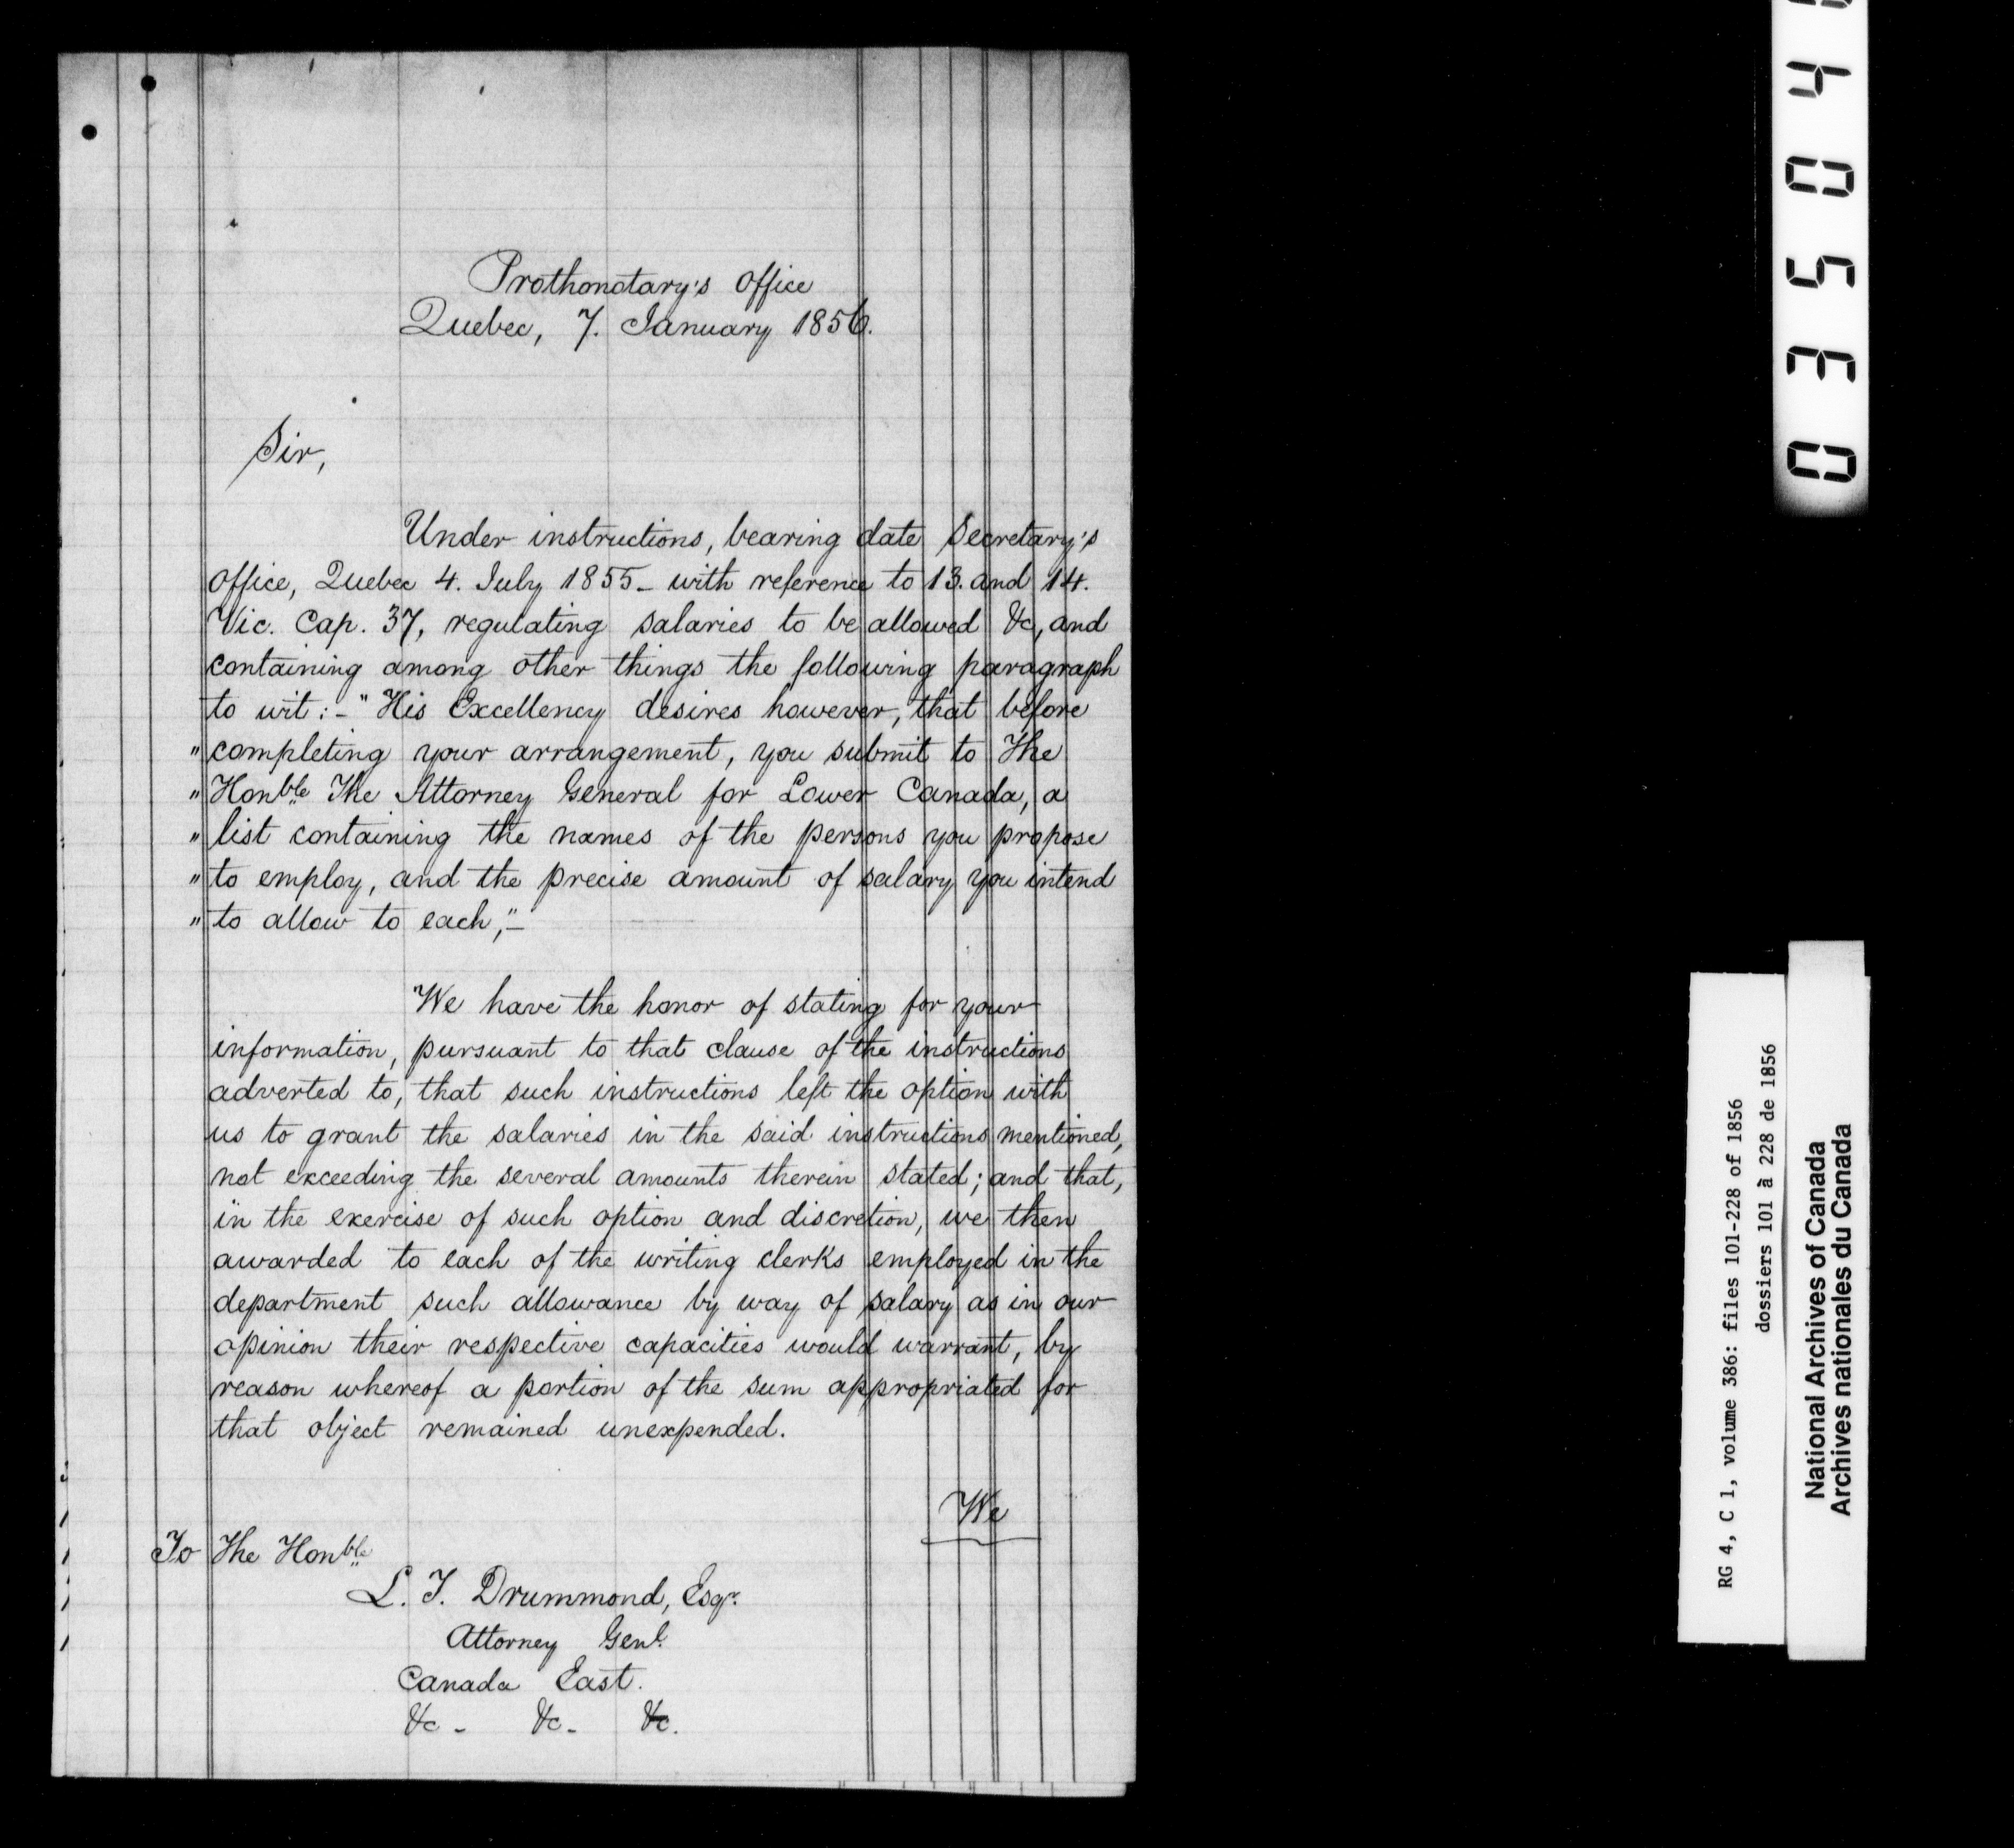 Prothonotary's Office
Quebec, 7. January 1856.
Sir,
Under instructions, bearing date Secretary's
Office, Quebec 4. July 1855_ with reference to 13. and 14.
Vic. Cap. 37, regulating salaries to be allowed &c, and
containing among other things the following paragraph
to wit:_ "His Excellency desires however, that before
"completing your arrangement, you submit to The
"Honble The Attorney General for Lower Canada, a
"list containing the names of the persons you propose
"to employ, and the precise amount of salary you intend
"to allow to each,"_
We have the honor of stating for your
information, pursuant to that clause of the instructions
adverted to, that such instructions left the option with
us to grant the salaries in the said instructions mentioned,
not exceeding the several amounts therein stated; and that,
in the exercise of such option and discretion, we then
awarded to each of the writing clerks employed in the
department such allowance by way of salary as in our
opinion their respective capacities would warrant, by
reason whereof a portion of the sum appropriated for
that object remained unexpended.
We
To The Honble
L. T. Drummond, Esqr.
Attorney Genl.
Canada East.
&c - &c - &c.
RG 4, C 1, volume 386: files 101-228 of 1856
dossiers 101 à 228 de 1856
National Archives of Canada
Archives nationales du Canada